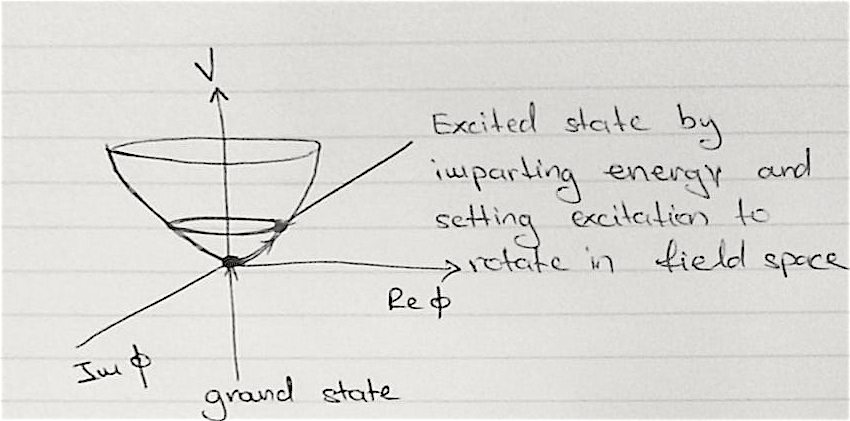 V
Excited state by
imparting energy and
setting excitation to
rotate in field space
Re ϕ
Im ϕ
ground state